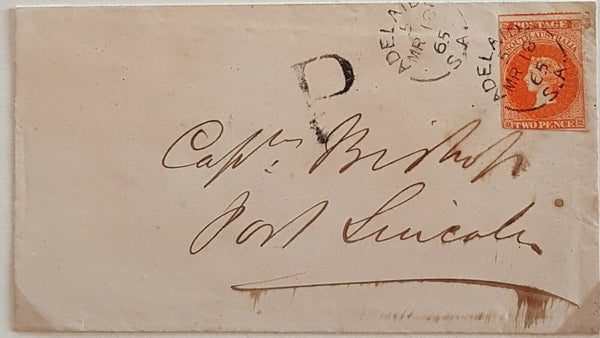 ADELAIDE
MR 18
65
S.A.
ADELAI
MR 18
65
S.A.
POSTAGE
SOUTH AUSTRALIA
TWO PENCE
P
Captn Bishop
Port Lincoln